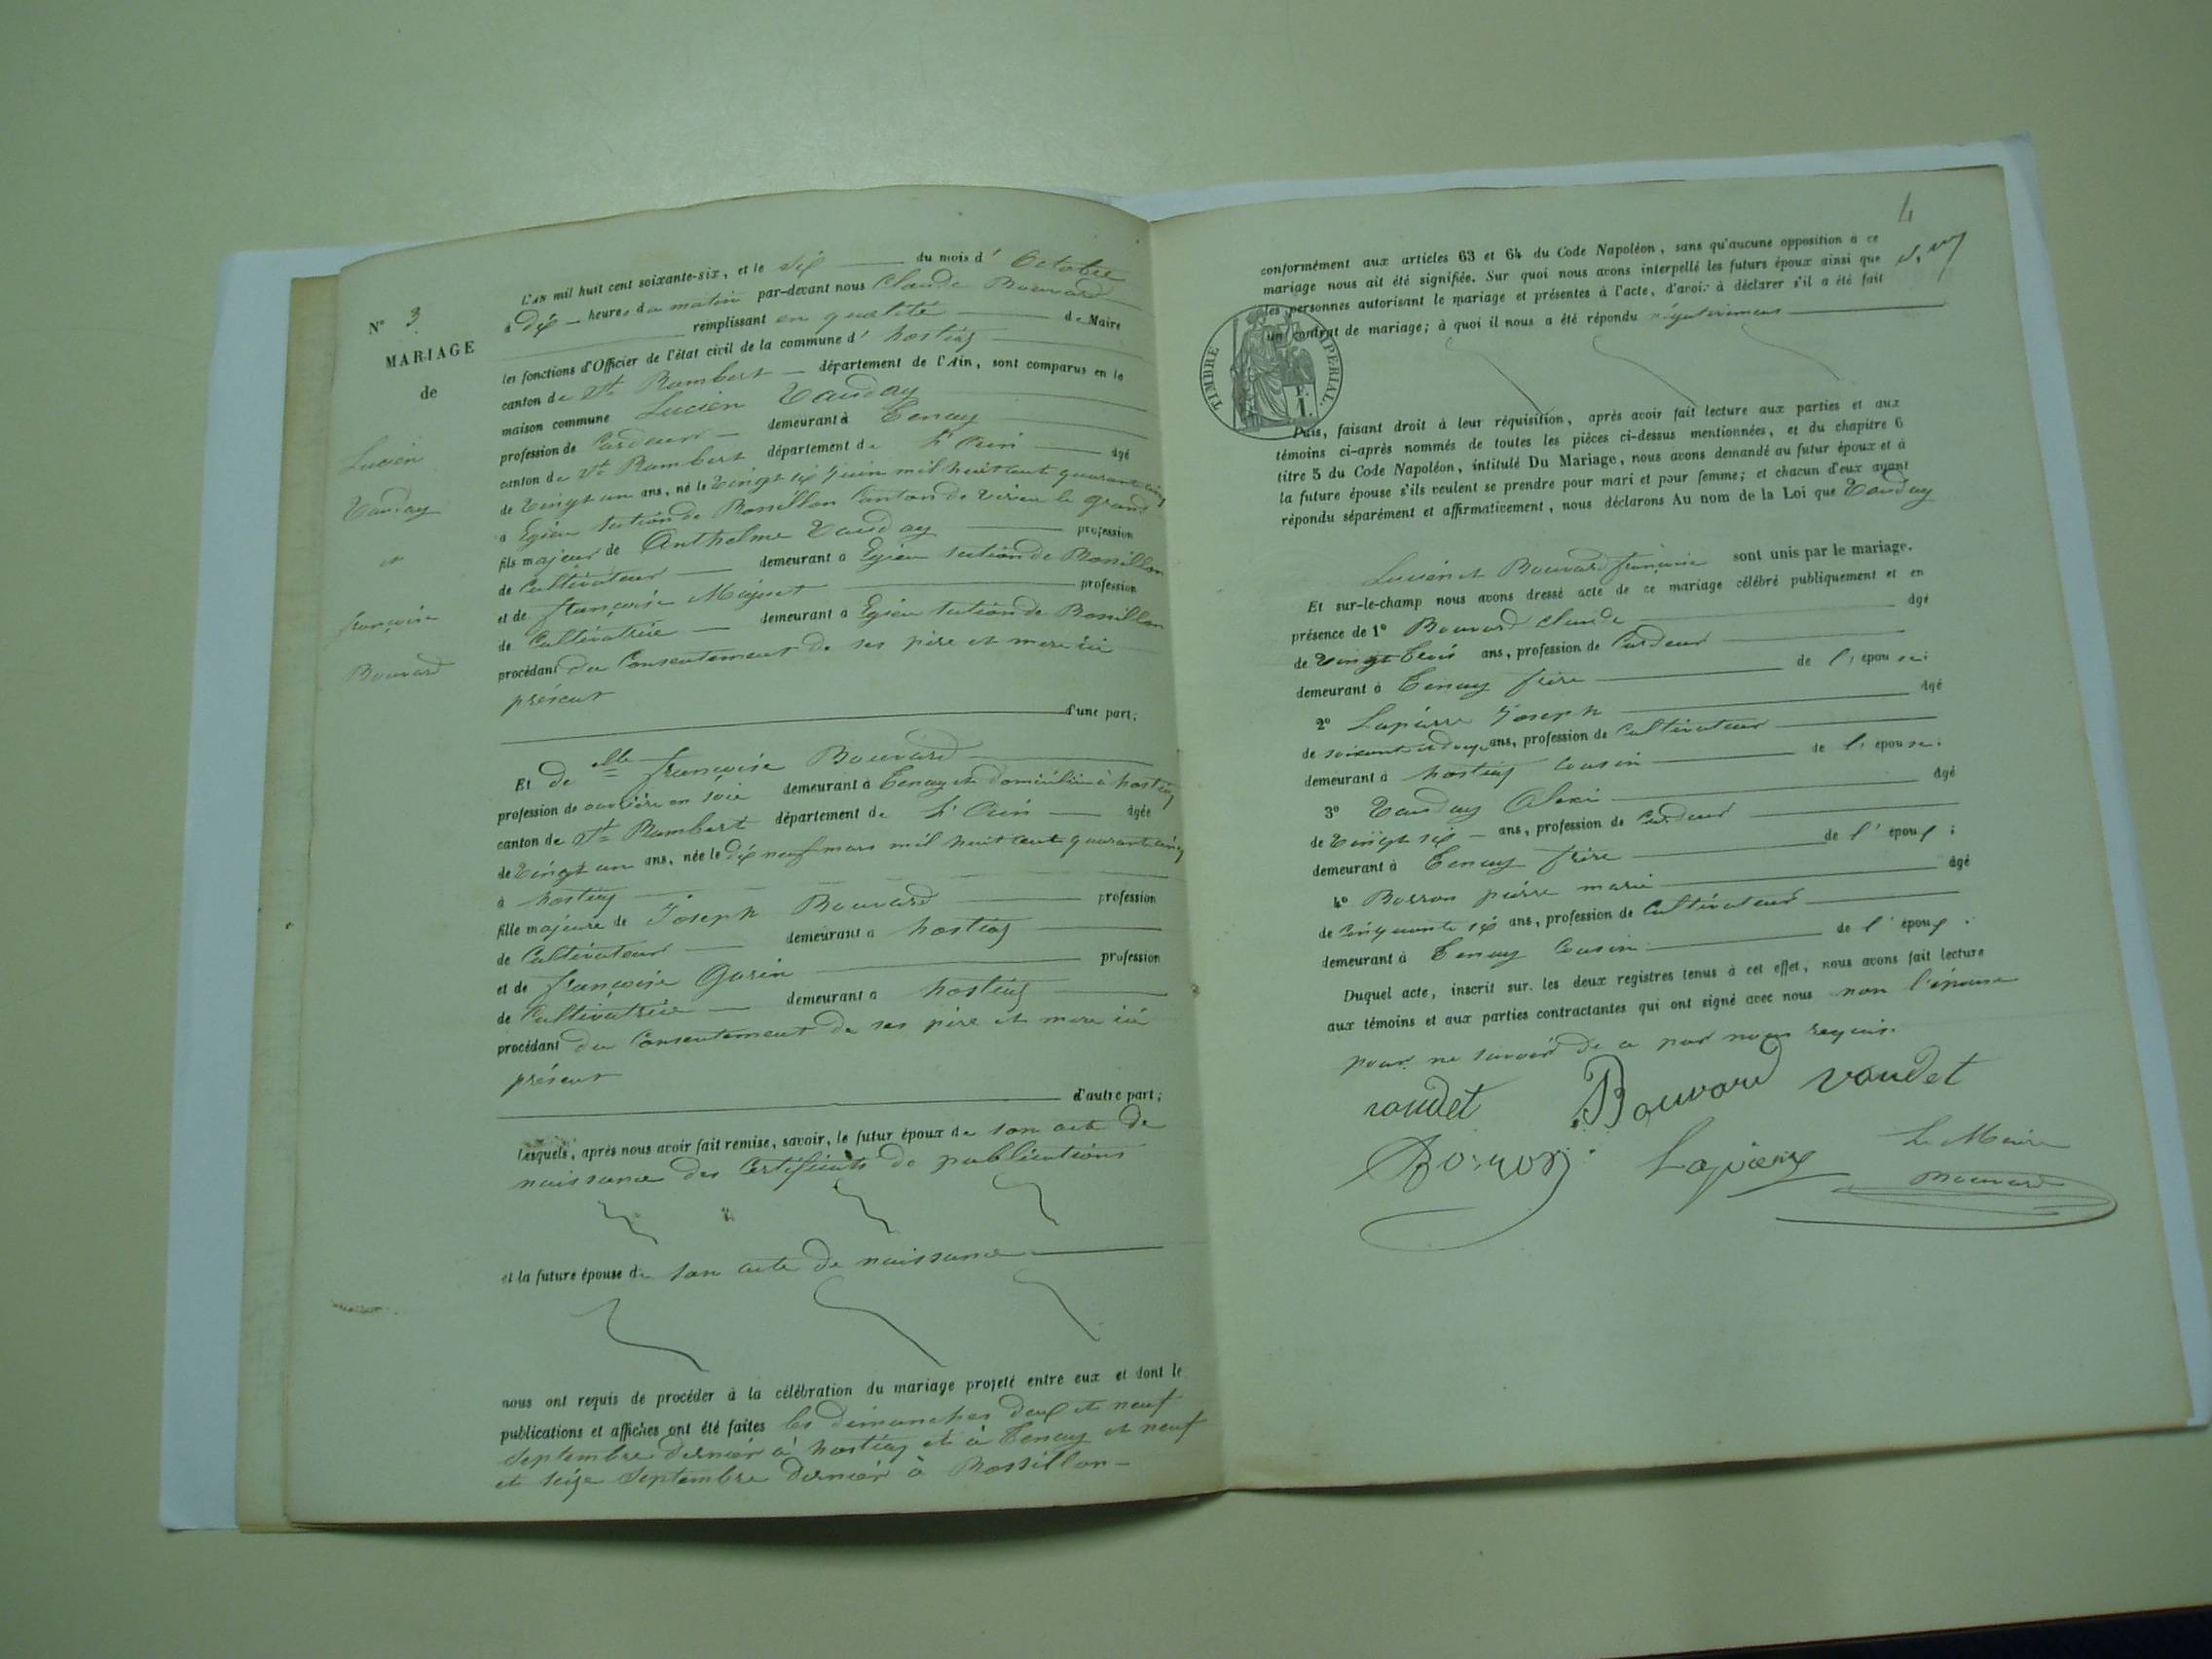 N° 3
MARIAGE
de
Lucien
Vauday
et
françoise
Bouvard
L'AN mil huit cent soixante-six, et le six du mois d'Octobre
à dix heures du matin par-devant nous Claude Bouvard
remplissant en qualité de Maire
les fonctions d'Officier de l'état civil de la commune d'hostiaz
canton de St Rambert département de l'Ain, sont comparus en la
maison commune Lucien Vauday
profession de Cardeur demeurant à Tenay
canton de St Rambert département de L'Ain âgé
de Vingt un ans, né le Vingt six Juin mil huit cent quarante cinq
à Egieu section de Rossillon Canton de Virieu le grand
fils majeur de Anthelme Vauday profession
de Cultivateur demeurant à Egieu section de Rossillon
et de françoise Miguet profession
de Cultivatrice demeurant à Egieu section de Rossillon
procédant du Consentement de ses père et mère ici
présent
d'une part;
Et de elle françoise Bouvard
profession de ouvrière en soie demeurant à Tenay et domiciliée à hostiaz
canton de St Rambert département de L'Ain âgée
de Vingt un ans, née le dix neuf mars mil huit cent quarante cinq
à hostiaz
fille majeure de Joseph Bouvard profession
de Cultivateur demeurant à hostiaz
et de françoise Garin profession
de Cultivatrice demeurant à hostiaz
procédant du Consentement de ses père et mère ici
présent
d'autre part;
Lesquels, après nous avoir fait remise, savoir, le futur époux de son acte de
naissance des Certificats de publications
et la future épouse de son acte de naissance
nous ont requis de procéder à la célébration du mariage projeté entre eux et dont le
publications et affiches ont été faites les dimanches deux et neuf
Septembre dernier à hostiaz et à Tenay et neuf
et seize Septembre dernier à Rossillon
4
conformément aux articles 63 et 64 du Code Napoléon, sans qu'aucune opposition à ce
mariage nous ait été signifiée. Sur quoi nous avons interpellé les futurs époux ainsi que
les personnes autorisant le mariage et présentes à l'acte, d'avoir à déclarer s'il a été fait
un contrat de mariage; à quoi il nous a été répondu négativement
TIMBRE IMPERIAL.
F. 1.
Puis, faisant droit à leur réquisition, après avoir fait lecture aux parties et aux
témoins ci-après nommés de toutes les pièces ci-dessus mentionnées, et du chapitre 6
titre 5 du Code Napoléon, intitulé Du Mariage, nous avons demandé au futur époux et à
la future épouse s'ils veulent se prendre pour mari et pour femme; et chacun d'eux ayant
répondu séparément et affirmativement, nous déclarons Au nom de la Loi que Vauday
Lucien et Bouvard françoise sont unis par le mariage.
Et sur-le-champ nous avons dressé acte de ce mariage célébré publiquement et en
présence de 1° Bouvard Claude âgé
de Vingt trois ans, profession de Cardeur
demeurant à Tenay frère de l'épouse;
2° Lapierre Joseph âgé
de soixante et douze ans, profession de Cultivateur
demeurant à hostiaz cousin de l'épouse;
3° Vauday Alexi âgé
de Vingt six ans, profession de Cardeur
demeurant à Tenay frère de l'époux;
4° Borron pierre marie âgé
de Cinquante six ans, profession de Cultivateur
demeurant à Tenay Cousin de l'époux.
Duquel acte, inscrit sur les deux registres tenus à cet effet, nous avons fait lecture
aux témoins et aux parties contractantes qui ont signé avec nous non l'épouse
pour ne savoir de ce par nous requis.
vaudet Bouvard vaudet
Borron Lapierre Le Maire
Bouvard